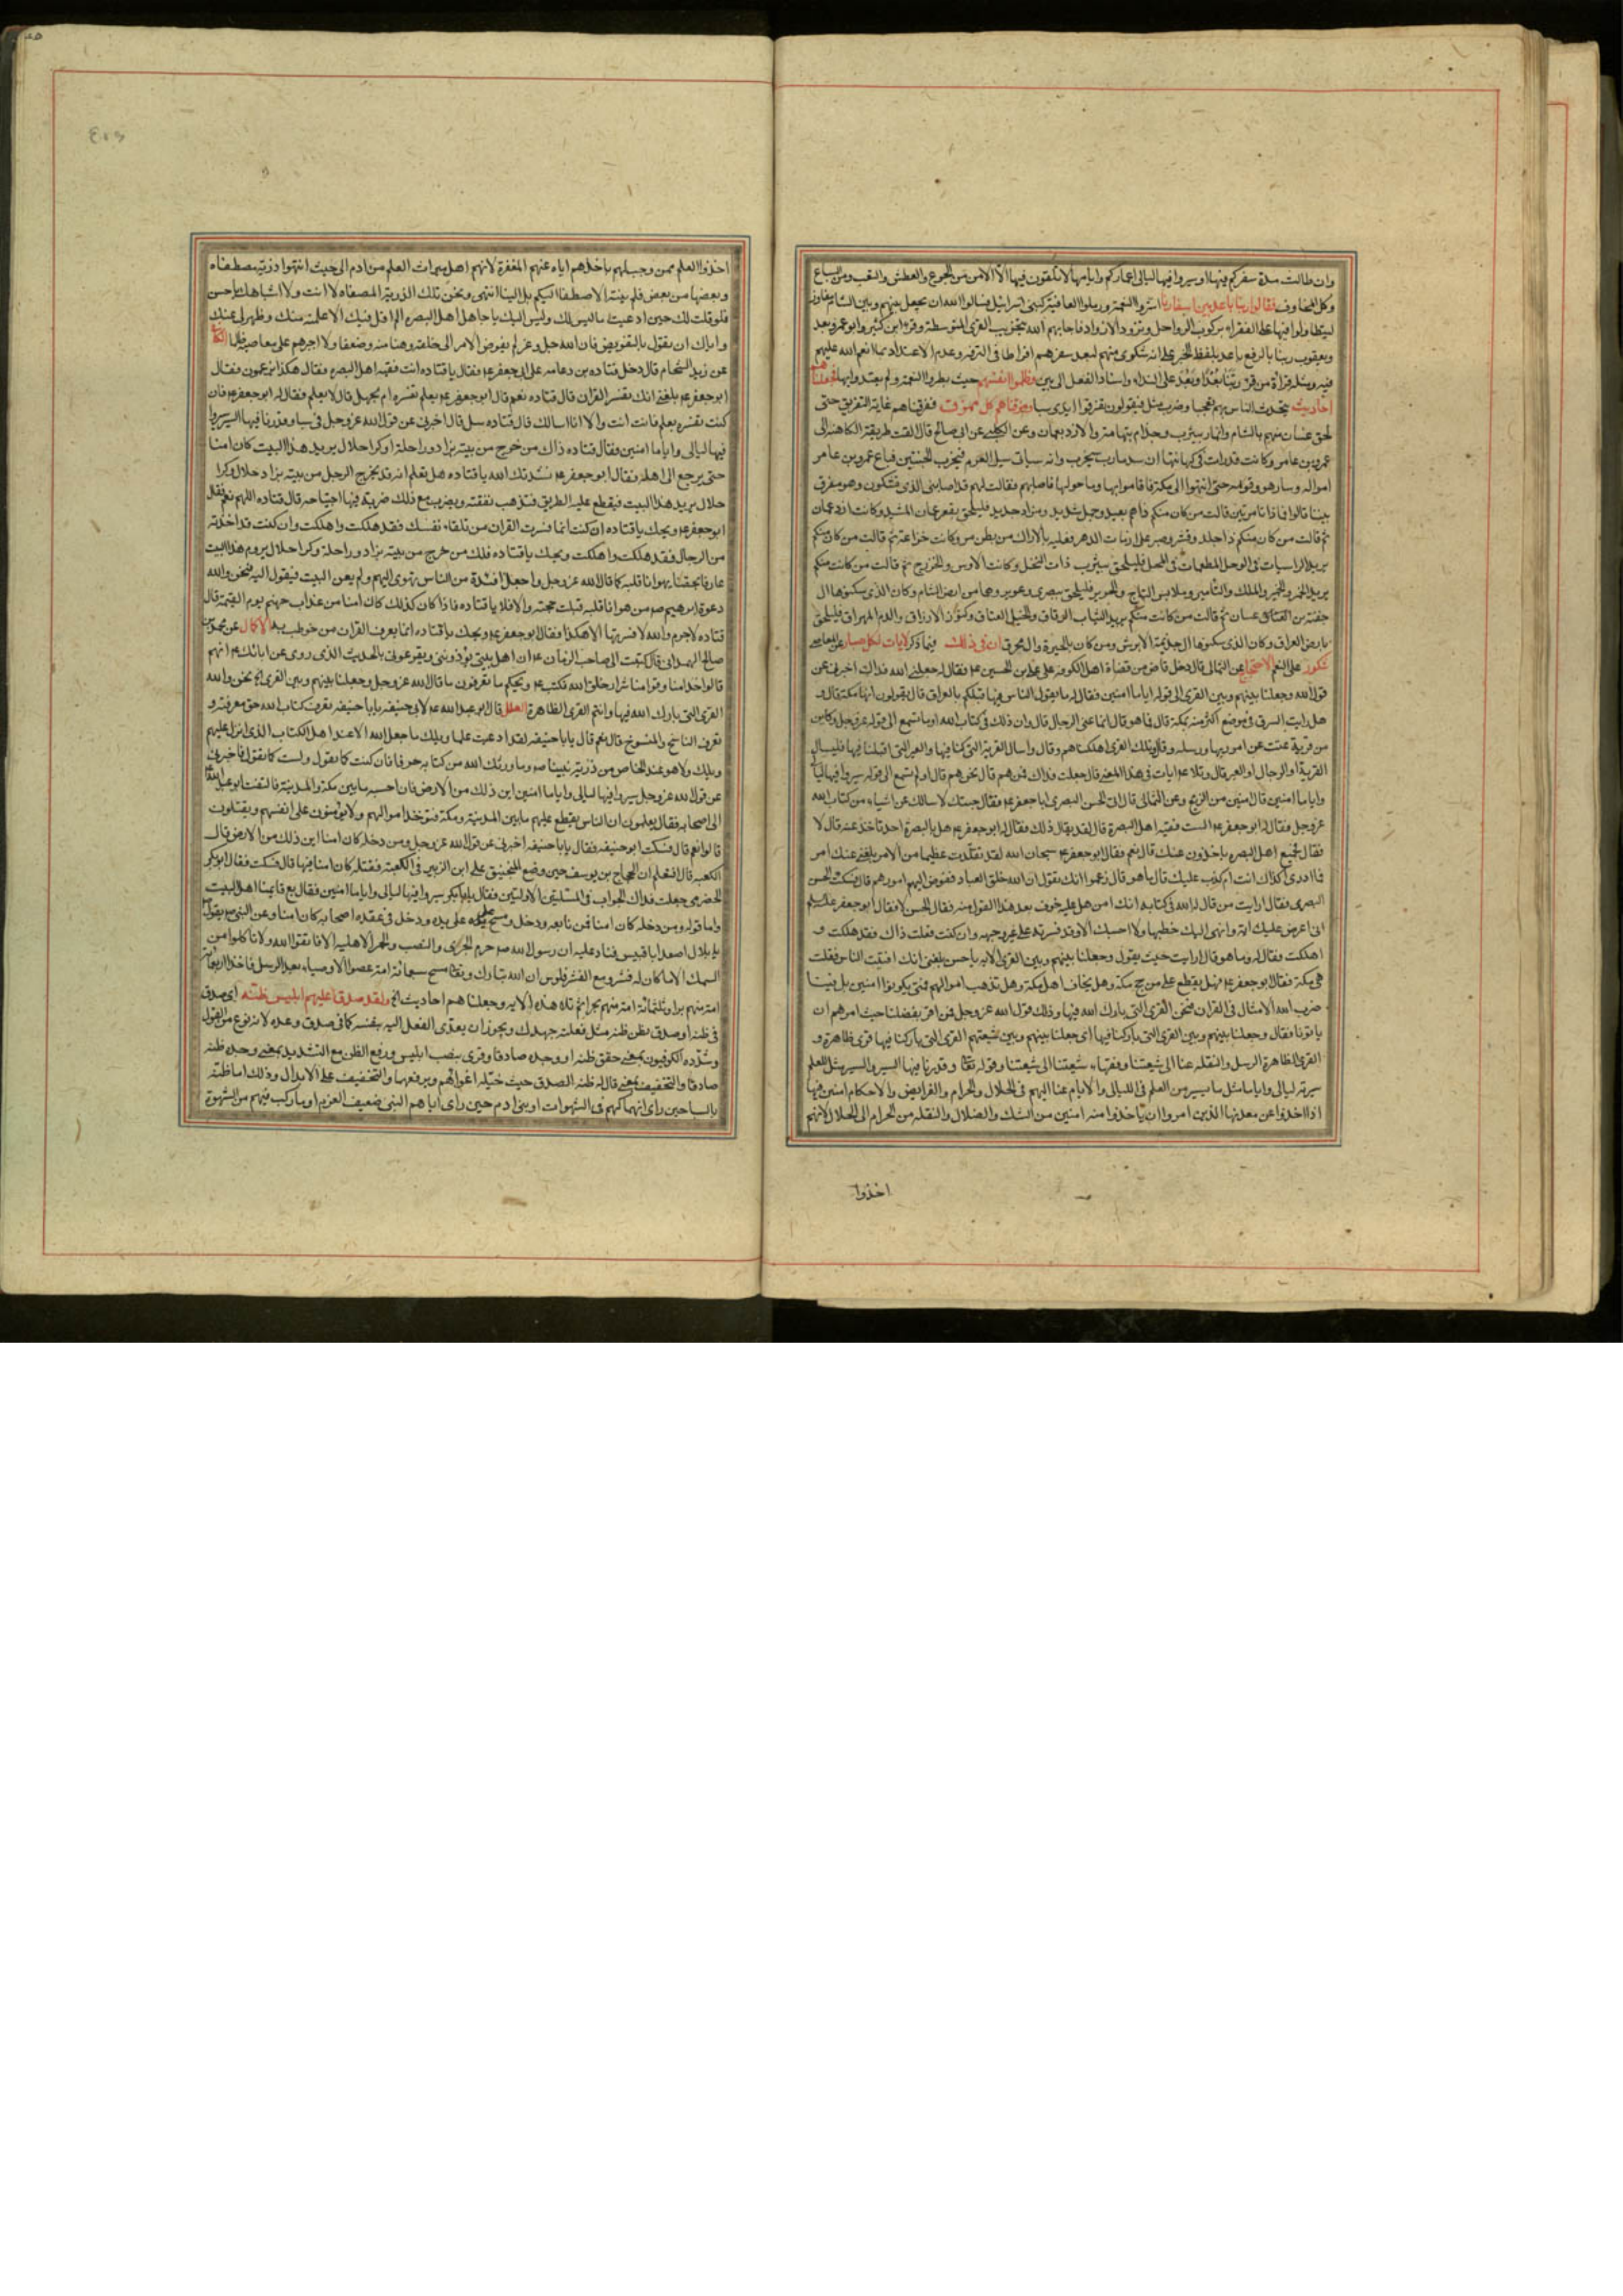 وان طالت مدة سفركم فيها او سيروا فيها ليالى اعماركم وايامها لا تلقون فيها الا الامن من الجوع والعطش والتعب ومن السباع
وكل المخاوف فقالوا ربنا باعد بين اسفارنا اشروا النعمة وملوا العافية كبنى اسرائيل فسالوا الله ان يجعل بينهم وبين الشام مفاوز
ليتطاولوا فيها على الفقراء بركوب الرواحل وتزود الازواد فاجابهم الله بتخريب القرى المتوسطة وقرء ابن كثير وابو عمرو بعد
ويعقوب ربنا بالرفع باعد بلفظ الخبر على انه شكوى منهم لبعد سفرهم افراطا فى الترفه وعدم الاعتداد بما انعم الله عليهم
فيه ومثله قراءة من قرء ربنا بعد او بعد على النداء واسناد الفعل الى بين وظلموا انفسهم حيث بطروا النعمة ولم يعتدوا بها فجعلناهم
احاديث يتحدث الناس بهم تعجبا وضرب مثل فيقولون تفرقوا ايدى سبا ومزقناهم كل ممزق ففرقناهم غاية التفريق حتى
لحق غسان منهم بالشام وانمار بيثرب وجذام بتهامة والازد بعمان وعن الكلبى عن ابى صالح قال القت طريقة الكاهنة الى
عمرو بن عامر وكانت قد رات فى كهانتها ان سد مارب سيخرب وانه سياتى سيل العرم فيخرب الجنتين فباع عمرو بن عامر
امواله وسار هو وقومه حتى انتهوا الى مكة فاقاموا بها وما حولها فاصابهم فقالت لهم قد اصابنى الذى تشكون وهو مفرق
بيننا قالوا فماذا تامرين قالت من كان منكم ذا هم بعيد وجمل شديد ومزاد جديد فليلحق بقصر عمان المشيد وكانت ازد عمان
ثم قالت من كان منكم ذا جلد وقسر وصبر على ازمات الدهر فعليه بالاراك من بطن مر وكانت خزاعة ثم قالت من كان منكم
يريد الراسيات فى الوحل المطعمات فى المحل فليلحق بيثرب ذات النخل وكانت الاوس والخزرج ثم قالت من كانت منكم
يريد الخمر والخمير والملك والتامير وملابس التاج والحرير فليلحق ببصرى وعوير وهما من ارض الشام وكان الذى سكنوها ال
جفنة من غسان ثم قالت من كانت منكم يريد الثياب الرقاق والخيل العتاق وكنوز الارزاق والدم المهراق فليلحق
بارض العراق وكان الذى سكنوها ال جذيمة الابرش ومن كان بالحيرة وال محرق ان فى ذلك فيما ذكر لايات لكل صبار عن المعاصى
شكور على النعم الاحتجاج عن الثمالى قال دخل قاض من قضاة اهل الكوفة على على بن الحسين ع فقال له جعلنى الله فداك اخبرنى عن
قول الله وجعلنا بينهم وبين القرى الى قوله اياما امنين فقال له ما يقول الناس فيها قبلكم بالعراق قال يقولون انها مكة قال و
هل رايت السرق فى موضع اكثر منه بمكة قال فما هو قال انما عنى الرجال قال واين ذلك فى كتاب الله اوما تسمع الى قوله عز وجل وكاين
من قرية عتت عن امر ربها ورسله وقال وتلك القرى اهلكناهم وقال واسال القرية التى كنا فيها والعير التى اقبلنا فيها فليسال
القرية او الرجال او العير قال وتلا ع ايات فى هذا المعنى قال جعلت فداك فمن هم قال نحن هم قال اولم تسمع الى قوله سيروا فيها ليالى
واياما امنين قال امنين من الزيغ وعن الثمالى قال اتى الحسن البصرى ابا جعفر ع فقال جئتك لاسالك عن اشياء من كتاب الله
عز وجل فقال له ابو جعفر ع الست فقيه اهل البصرة قال لقد يقال ذلك فقال له ابو جعفر ع هل بالبصرة احد تاخذ عنه قال لا
فقال فجميع اهل البصره ياخذون عنك قال نعم فقال ابو جعفر ع سبحان الله لقد تقلدت عظيما من الامر بلغنى عنك امر
فما ادرى اكذاك انت ام كذب عليك قال ما هو قال زعموا انك تقول ان الله خلق العباد ففوض اليهم امورهم قال فسكت الحسن
البصرى فقال ارايت من قال له الله فى كتابه انك امن هل عليه خوف بعد هذا القول منه فقال الحسن لا فقال ابو جعفر عليه السلم
انى اعرض عليك اية وانهى اليك خطبها ولا احسبك الا وقد فسرته على غير وجهه وان كنت فعلت ذاك فقد هلكت و
اهلكت فقال له وما هو قال ارايت حيث يقول وجعلنا بينهم وبين القرى الايه يا حسن بلغنى انك افتيت الناس فقلت
هى مكة فقال ابو جعفر ع فهل يقطع على من حج مكة وهل يخاف اهل مكة وهل تذهب اموالهم فمتى يكونوا امنين بل فينا
ضرب الله الامثال فى القران فنحن القرى التى بارك الله فيها وذلك قول الله عز وجل فمن اقر بفضلنا حيث امرهم ان
ياتونا فقال وجعلنا بينهم وبين القرى التى باركنا فيها اى جعلنا بينهم وبين شيعتهم القرى التى باركنا فيها قرى ظاهرة و
القرى الظاهرة الرسل والنقلة عنا الى شيعتنا وفقهاء شيعتنا الى شيعتنا وقوله تعالى وقدرنا فيها السير والسير مثل للعلم
سيرته ليالى واياما مثل ما يسير من العلم فى الليالى والايام عنا اليهم فى الحلال والحرام والفرايض والاحكام امنين فيها
اذا اخذوا عن معدنها الذين امروا ان ياخذوا منه امنين من الشك والضلال والنقلة من الحرام الى الحلال لانهم
اخذوا
اخذوا العلم ممن وجب لهم باخذهم اياه عنهم المغفرة لانهم اهل ميراث العلم من ادم الى حيث انتهوا ذرية مصطفاه
وبعضها من بعض فلم ينته الاصطفا اليكم بل الينا انتهى ونحن تلك الذرية المصطفاه لا انت ولا اشباهك يا حسن
فلو قلت لك حين ادعيت ما ليس لك وليس اليك يا جاهل اهل البصره لم اقل فيك الا علمته منك وظهر لى عنك
واياك ان تقول بالتفويض فان الله جل وعز لم يفوض الامر الى خلقه وهنا منه وضعفا ولا اجبرهم على معاصيه ظلما الكافى
عن زيد الشحام قال دخل قتاده بن دعامه على ابى جعفر ع فقال يا قتاده انت فقيه اهل البصره فقال هكذا يزعمون فقال
ابو جعفر ع بلغنى انك تفسر القران قال قتاده نعم قال ابو جعفر ع بعلم تفسره ام بجهل قال لا بعلم فقال له ابو جعفر ع فان
كنت تفسره بعلم فانت انت وانا اسالك قال قتاده سل قال اخبرنى عن قول الله عز وجل فى سبا وقدرنا فيها السير سيروا
فيها ليالى واياما امنين فقال قتاده ذاك من خرج من بيته بزاد وراحلة وكرا حلال يريد هذا البيت كان امنا
حتى يرجع الى اهله فقال ابو جعفر ع نشدتك الله يا قتاده هل تعلم انه قد يخرج الرجل من بيته بزاد حلال وكرا
حلال يريد هذا البيت فيقطع عليه الطريق فتذهب نفقته ويضرب مع ذلك ضربة فيها اجتياحه قال قتاده اللهم نعم فقال
ابو جعفر ع ويحك يا قتاده ان كنت انما فسرت القران من تلقاء نفسك فقد هلكت واهلكت وان كنت قد اخذته
من الرجال فقد هلكت واهلكت ويحك يا قتاده ذلك من خرج من بيته بزاد وراحلة وكرا حلال يروم هذا البيت
عارفا بحقنا يهوانا قلبه كما قال الله عز وجل واجعل افئدة من الناس تهوى اليهم ولم يعن البيت فيقول اليه فنحن والله
دعوة ابرهيم ص من هوانا قلبه قبلت حجته والا فلا يا قتاده فاذا كان كذلك كان امنا من عذاب جهنم يوم القيمة قال
قتاده لا جرم والله لا فسرتها الا هكذا فقال ابو جعفر ع ويحك يا قتاده انما يعرف القران من خوطب به الاكمال عن محمد بن
صالح الهمدانى قال كتبت الى صاحب الزمان ع ان اهل بيتى يؤذوننى ويقرعونى بالحديث الذى روى عن ابائك ع انهم
قالوا خدامنا وقوامنا شرار خلق الله فكتب ع ويحكم ما تقرؤن ما قال الله عز وجل وجعلنا بينهم وبين القرى الخ نحن والله
القرى التى بارك الله فيها وانتم القرى الظاهرة العلل قال ابو عبد الله ع لابى حنيفه يا با حنيفه تعرف كتاب الله حق معرفته و
تعرف الناسخ والمنسوخ قال نعم قال يا با حنيفه لقد ادعيت علما ويلك ما جعل الله الا عند اهل الكتاب الذى انزل عليهم
ويلك ولا هو عند الخاص من ذرية نبينا ص وما ورثك الله من كتابه حرفا فان كنت كما تقول ولست كما تقول فاخبرنى
عن قول الله عز وجل سيروا فيها ليالى واياما امنين اين ذلك من الارض قال احسبه ما بين مكة والمدينة فالتفت ابو عبد الله ع
الى اصحابه فقال تعلمون ان الناس يقطع عليهم ما بين المدينة ومكة فتؤخذ اموالهم ولا يؤمنون على انفسهم ويقتلون
قالوا نعم قال فسكت ابو حنيفه فقال يا با حنيفه اخبرنى عن قول الله عز وجل ومن دخله كان امنا اين ذلك من الارض قال
الكعبه قال افتعلم ان الحجاج بن يوسف حين وضع المنجنيق على ابن الزبير فى الكعبة فقتله كان امنا فيها قال فسكت فقال ابو بكر
الحضرمى جعلت فداك الجواب فى المسئلتين الاولتين فقال يا با بكر سيروا فيها ليالى واياما امنين فقال مع قايمنا اهل البيت
واما قوله ومن دخله كان امنا فمن بايعه ودخل معه ومسح على يده ودخل فى عقده اصحابه كان امنا وعن النبى ص يقول
يا بلال اصعد ابا قبيس فناد عليه ان رسول الله ص حرم الجرى والضب والحمر الاهليه الا فاتقوا الله ولا تاكلوا من
السمك الا ما كان له قشر ومع القشر فلوس ان الله تبارك وتعالى مسخ سبعمائة امة عصوا الاوصياء بعد الرسل فاخذ اربعمائة
امة منهم برا وثلثمائة امة منهم بحرا ثم تلا هذه الايه وجعلناهم احاديث الخ ولقد صدق عليهم ابليس ظنه اى صدق
فى ظنه او صدق بظن ظنه مثل فعلته جهدك ويجوز ان يعدى الفعل اليه بنفسه كما فى صدق وعده لانه نوع من القول
وشدده الكوفيون بمعنى حقق ظنه او وجده صادقا وقرى بنصب ابليس ورفع الظن مع التشديد بمعنى وجده ظنه
صادقا والتخفيف بمعنى قال له ظنه الصدق حيث خيله اغواءهم وبرفعهما والتخفيف على الابدال وذلك اما ظنه
بالسبا حين راى انهماكهم فى الشهوات او ببنى ادم حين راى اباهم النبى ضعيف العزم او ما ركب فيهم من الشهوة